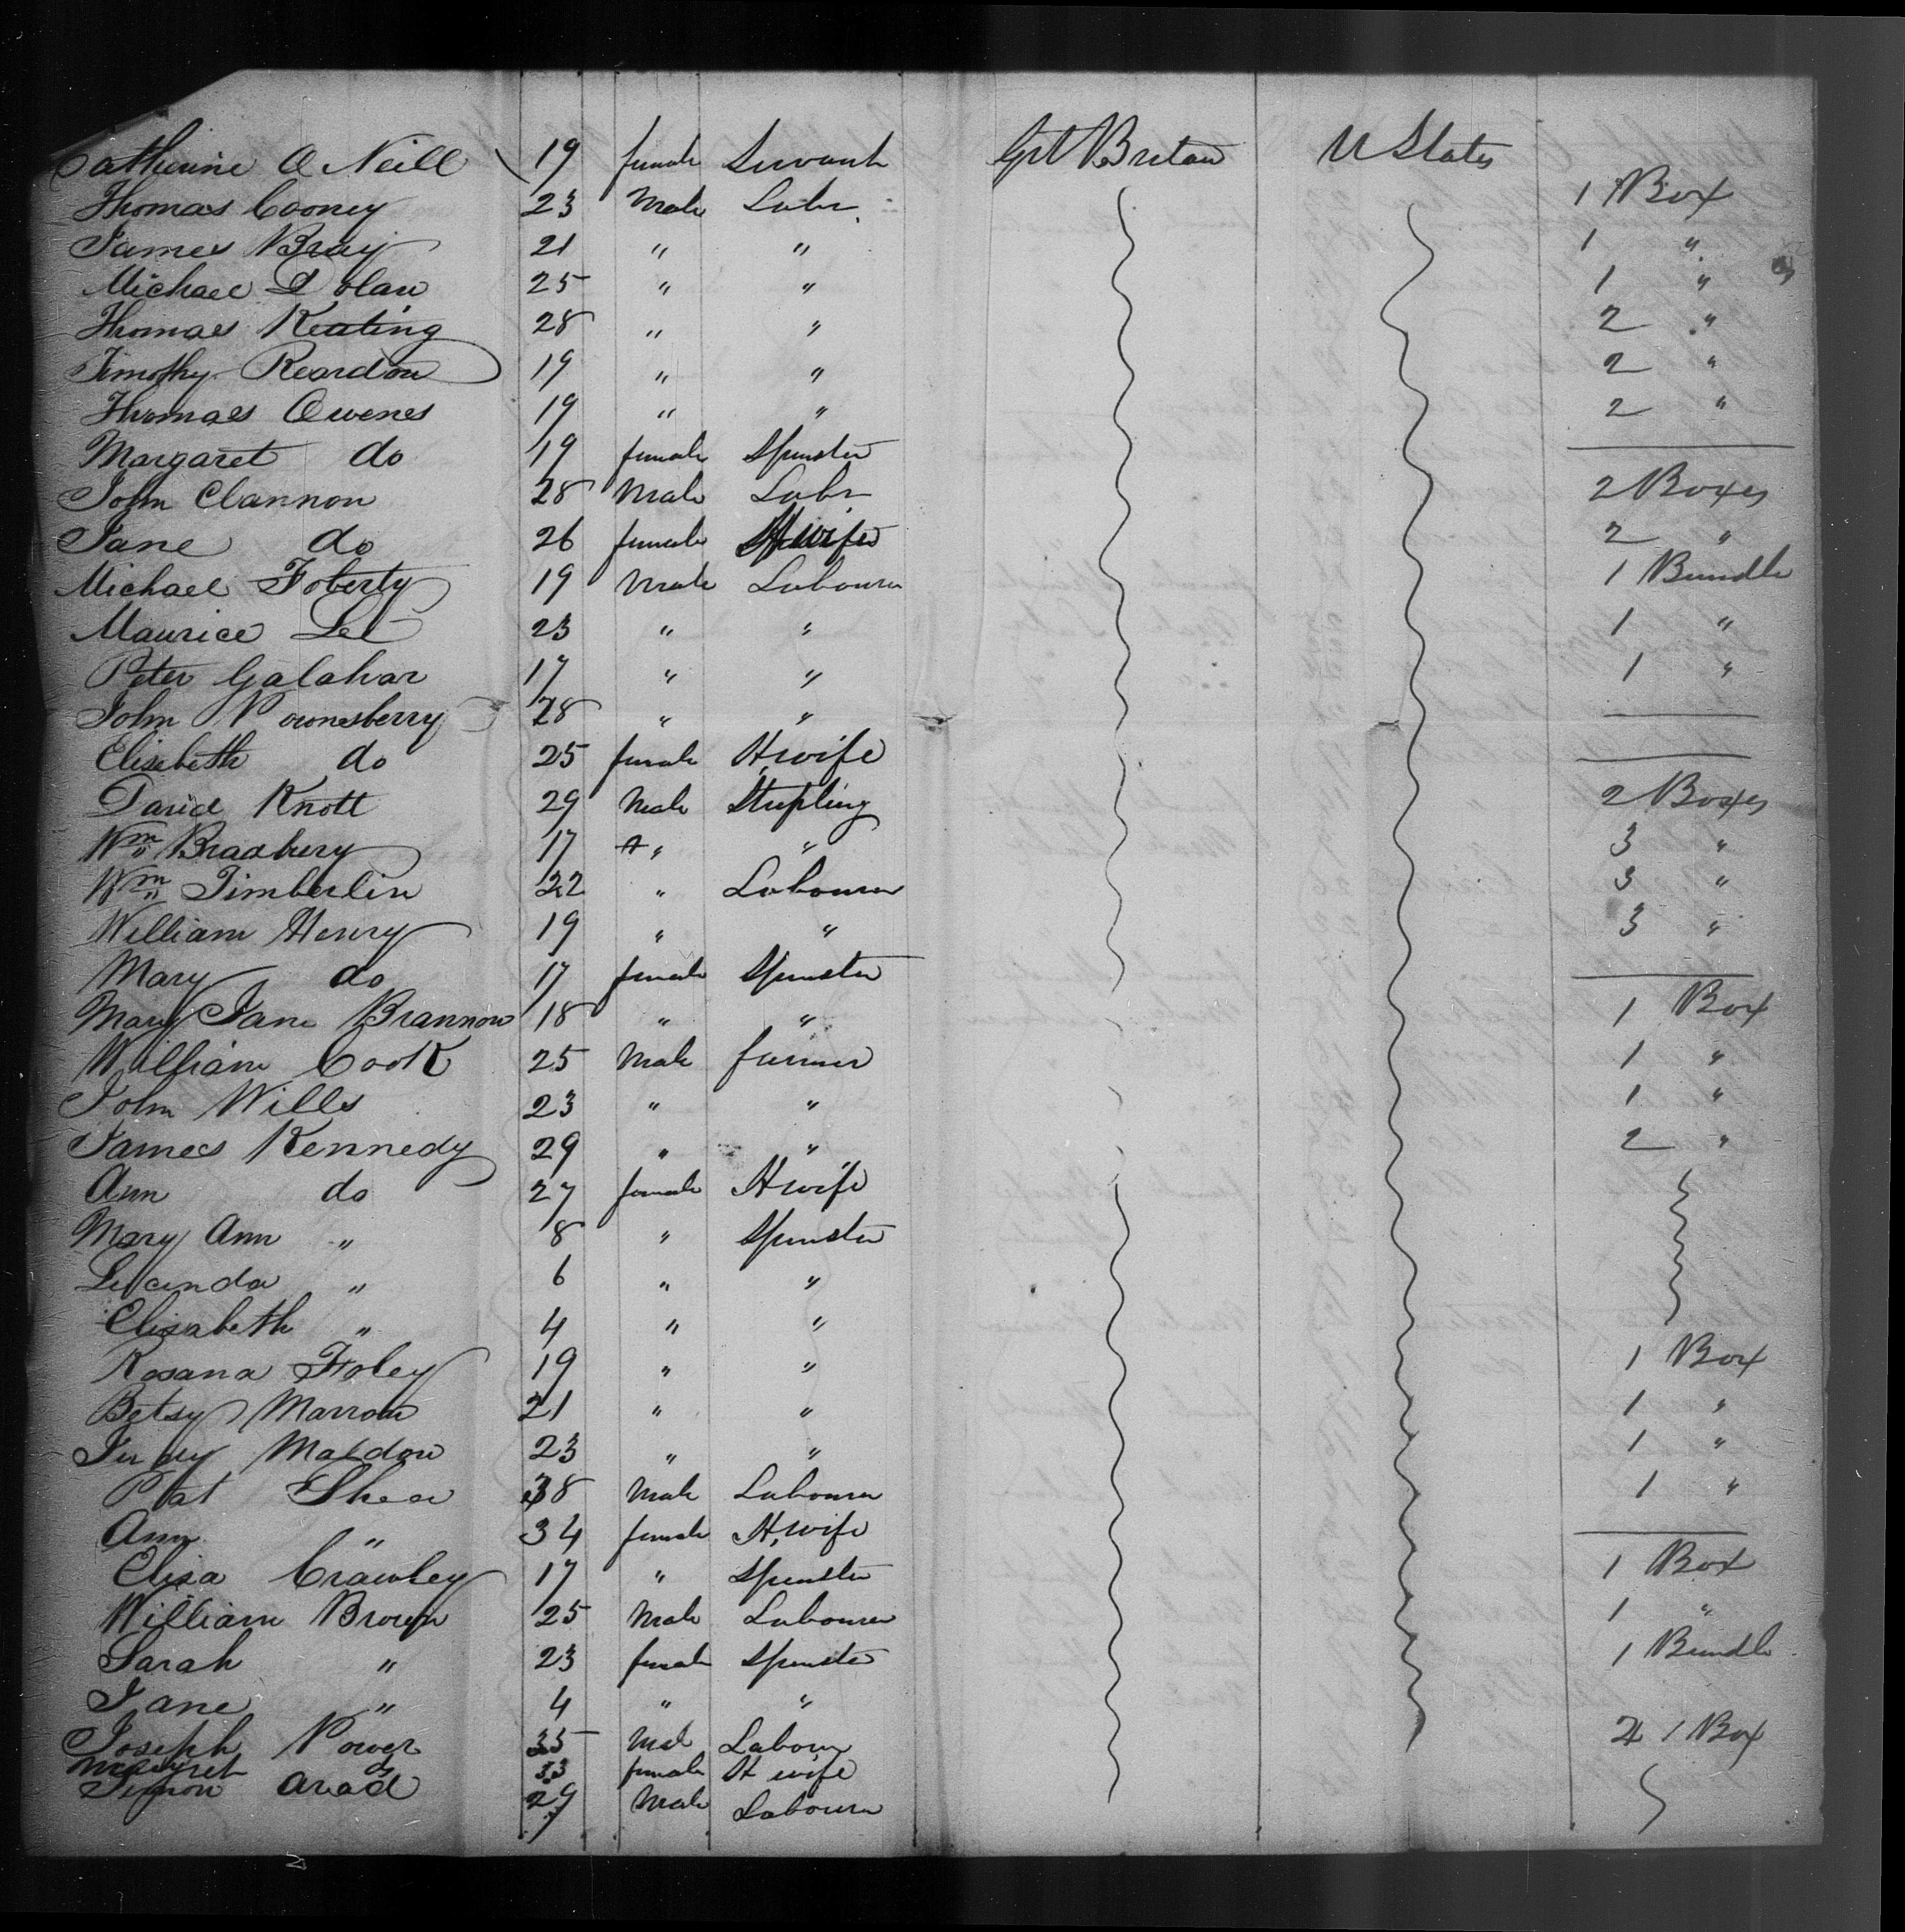 Catherine O Neill 19 female Servant Grt Britan U States
Thomas Cooney 23 Male Labr 1 Box
James Bray 21 " " 1 "
Michael Dolan 25 " " 1 "
Thomas Keating 28 " " 2 "
Timothy Reardon 19 " " 2 "
Thomas Owenes 19 " " 2 "
Margaret do 19 female Spinster
John Clannon 28 Male Labr 2 Boxes
Jane do 26 female H wife 2 "
Michael Foberty 19 Male Labourer 1 Bundle
Maurice Lee 23 " " 1 "
Peter Galahar 17 " " 1 "
John Pownesberry 28 " "
Elisebeth do 25 female H, wife
David Knott 29 Male Stripling 2 Boxes
Wm Bradbury 17 " " 3 "
Wm Timberlin 22 " Labourer 3 "
William Henry 19 " " 3 "
Mary do 17 female Spinster
Mary Jane Brannon 18 " " 1 Box
William Cook 25 Male farmer 1 "
John Wills 23 " " 1 "
James Kennedy 29 " " 2 "
Ann do 27 female H wife
Mary Ann " 8 " Spinster
Lucinda " 6 " "
Elisabeth " 4 " "
Rosana Foley 19 " " 1 Box
Betsy Marrow 21 " " 1 "
Maldon 23 " " 1 "
Pat Shea 38 Male Labourer 1 "
Ann " 34 female H, wife
Elisa Crawley 17 " Spinster 1 Box
William Brown 25 Male Labourer 1 "
Sarah " 23 female Spinster 1 Bundle
Jane " 4 " "
Joseph Power 35 Male Labour 1 Box
Margret do 33 female H wife
Simon Arad 29 Male Labourer